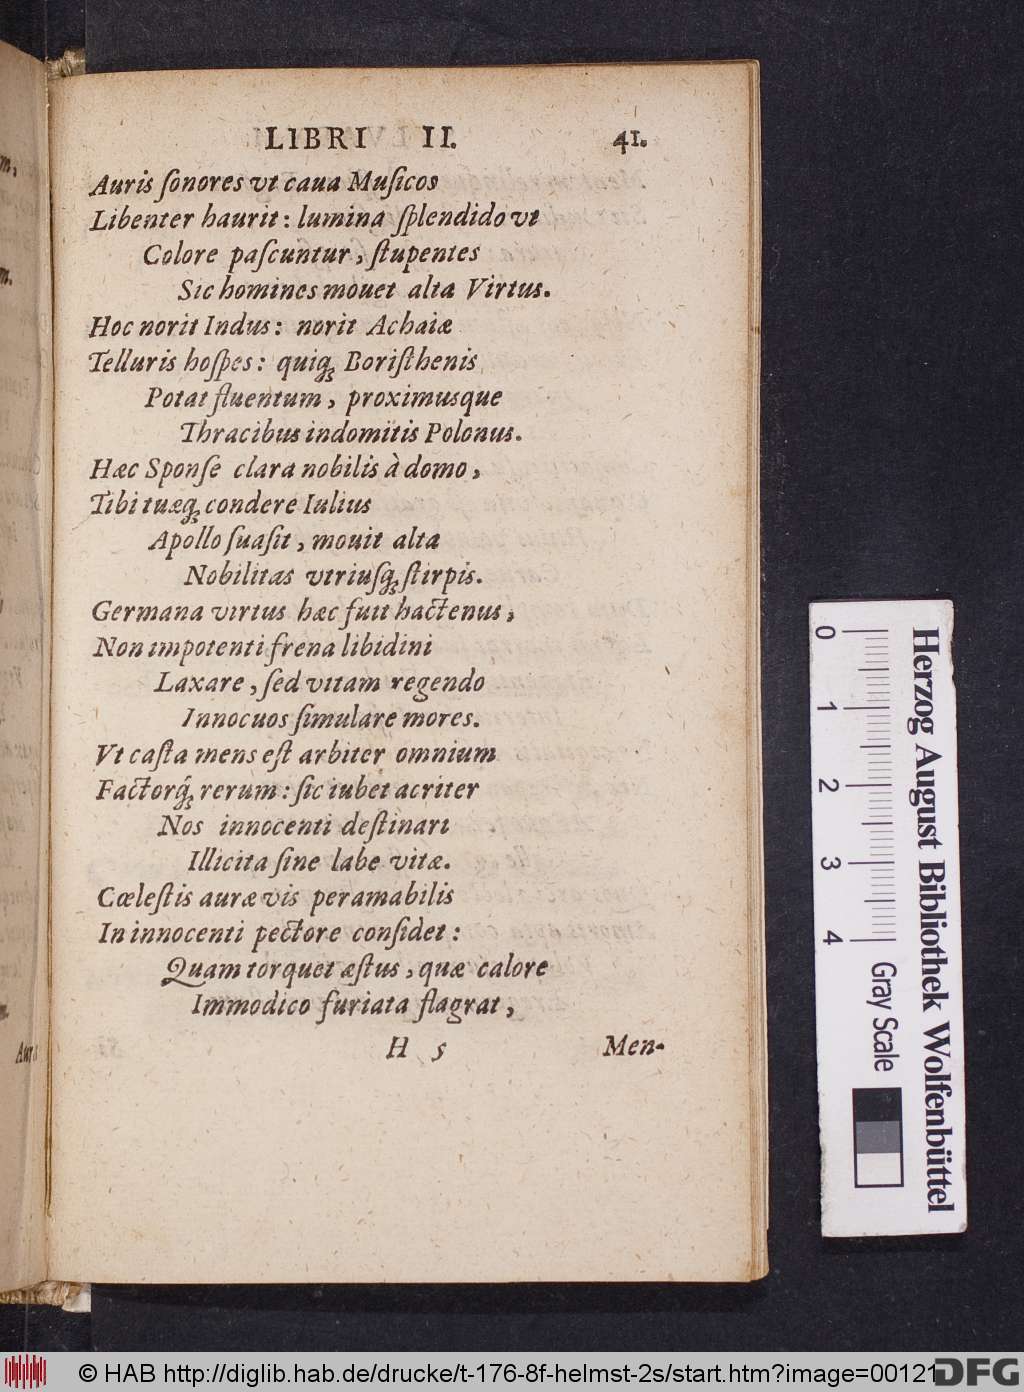 LIBRI II. 41.
Auris ſonores vt caua Muſicos
Libenter haurit: lumina ſplendido vt
Colore paſcuntur, ſtupentes
Sic homines mouet alta Virtus.
Hoc norit Indus: norit Achaiæ
Telluris hoſpes: quiq́ꝫ Boriſthenis
Potat fluentum, proximusque
Thracibus indomitis Polonus.
Hæc Sponſe clara nobilis à domo,
Tibi tuæqꝫ condere Iulius
Apollo ſuaſit, mouit alta
Nobilitas vtriuſqꝫ ſtirpis.
Germana virtus hæc fuit hactenus,
Non impotenti frena libidini
Laxare, ſed vitam regendo
Innocuos ſimulare mores.
Vt caſta mens eſt arbiter omnium
Factorq́ꝫ rerum: ſic iubet acriter
Nos innocenti deſtinari
Illicita ſine labe vitæ.
Cœleſtis auræ vis peramabilis
In innocenti pectore conſidet:
Quam torquet æſtus, quæ calore
Immodico furiata flagrat,
H 5 Men-
Herzog August Bibliothek Wolfenbüttel
0 1 2 3 4 Gray Scale
© HAB http://diglib.hab.de/drucke/t-176-8f-helmst-2s/start.htm?image=00121
DFG